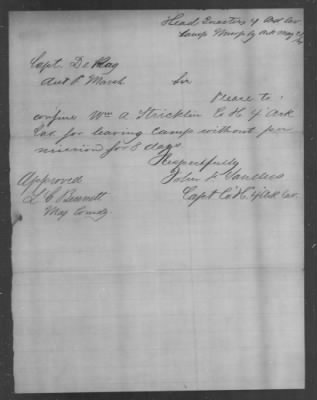 Head Quarters 4 Ark Cav
Camp Murphy Ark May
Capt. De Kay
Asst P. Marsh Sir
Please to
confine Wm A Stricklin Co H 4" Ark
Cav for leaving camp without per
mission for 8 days
Respectfully
Approved
John H Sanders
L C Bennett
Capt Co H 4 Ark Cav.
Maj Comdg.